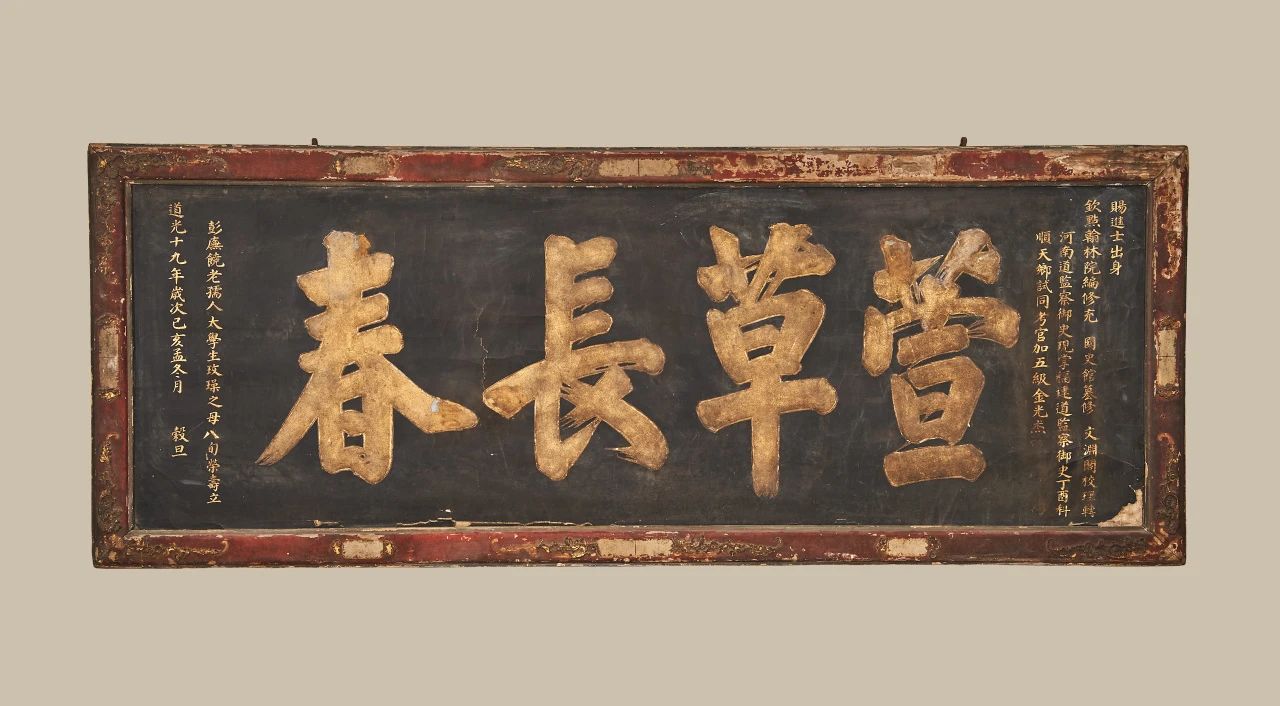 賜進士出身
欽點翰林院編修充 國史館纂修 文淵閣校理轉
河南道監察御史現掌福建道監察御史丁酉科
順天鄉試同考官加五級金光杰
萱草長春
彭應饒老孺人太學生玫璪之母八旬榮壽立
道光十九年歲次己亥孟冬月 穀旦